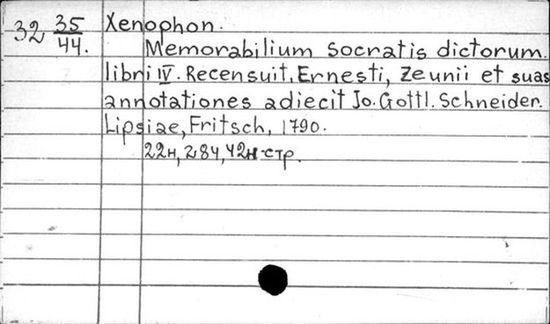 32 35/44. Xenophon.
Memorabilium Socratis dictorum.
libri IV. Recensuit, Ernesti, Zeunii et suas
annotationes adiecit Jo. Gottl. Schneider.
Lipsiae, Fritsch, 1790.
22н, 284, 42н стр.